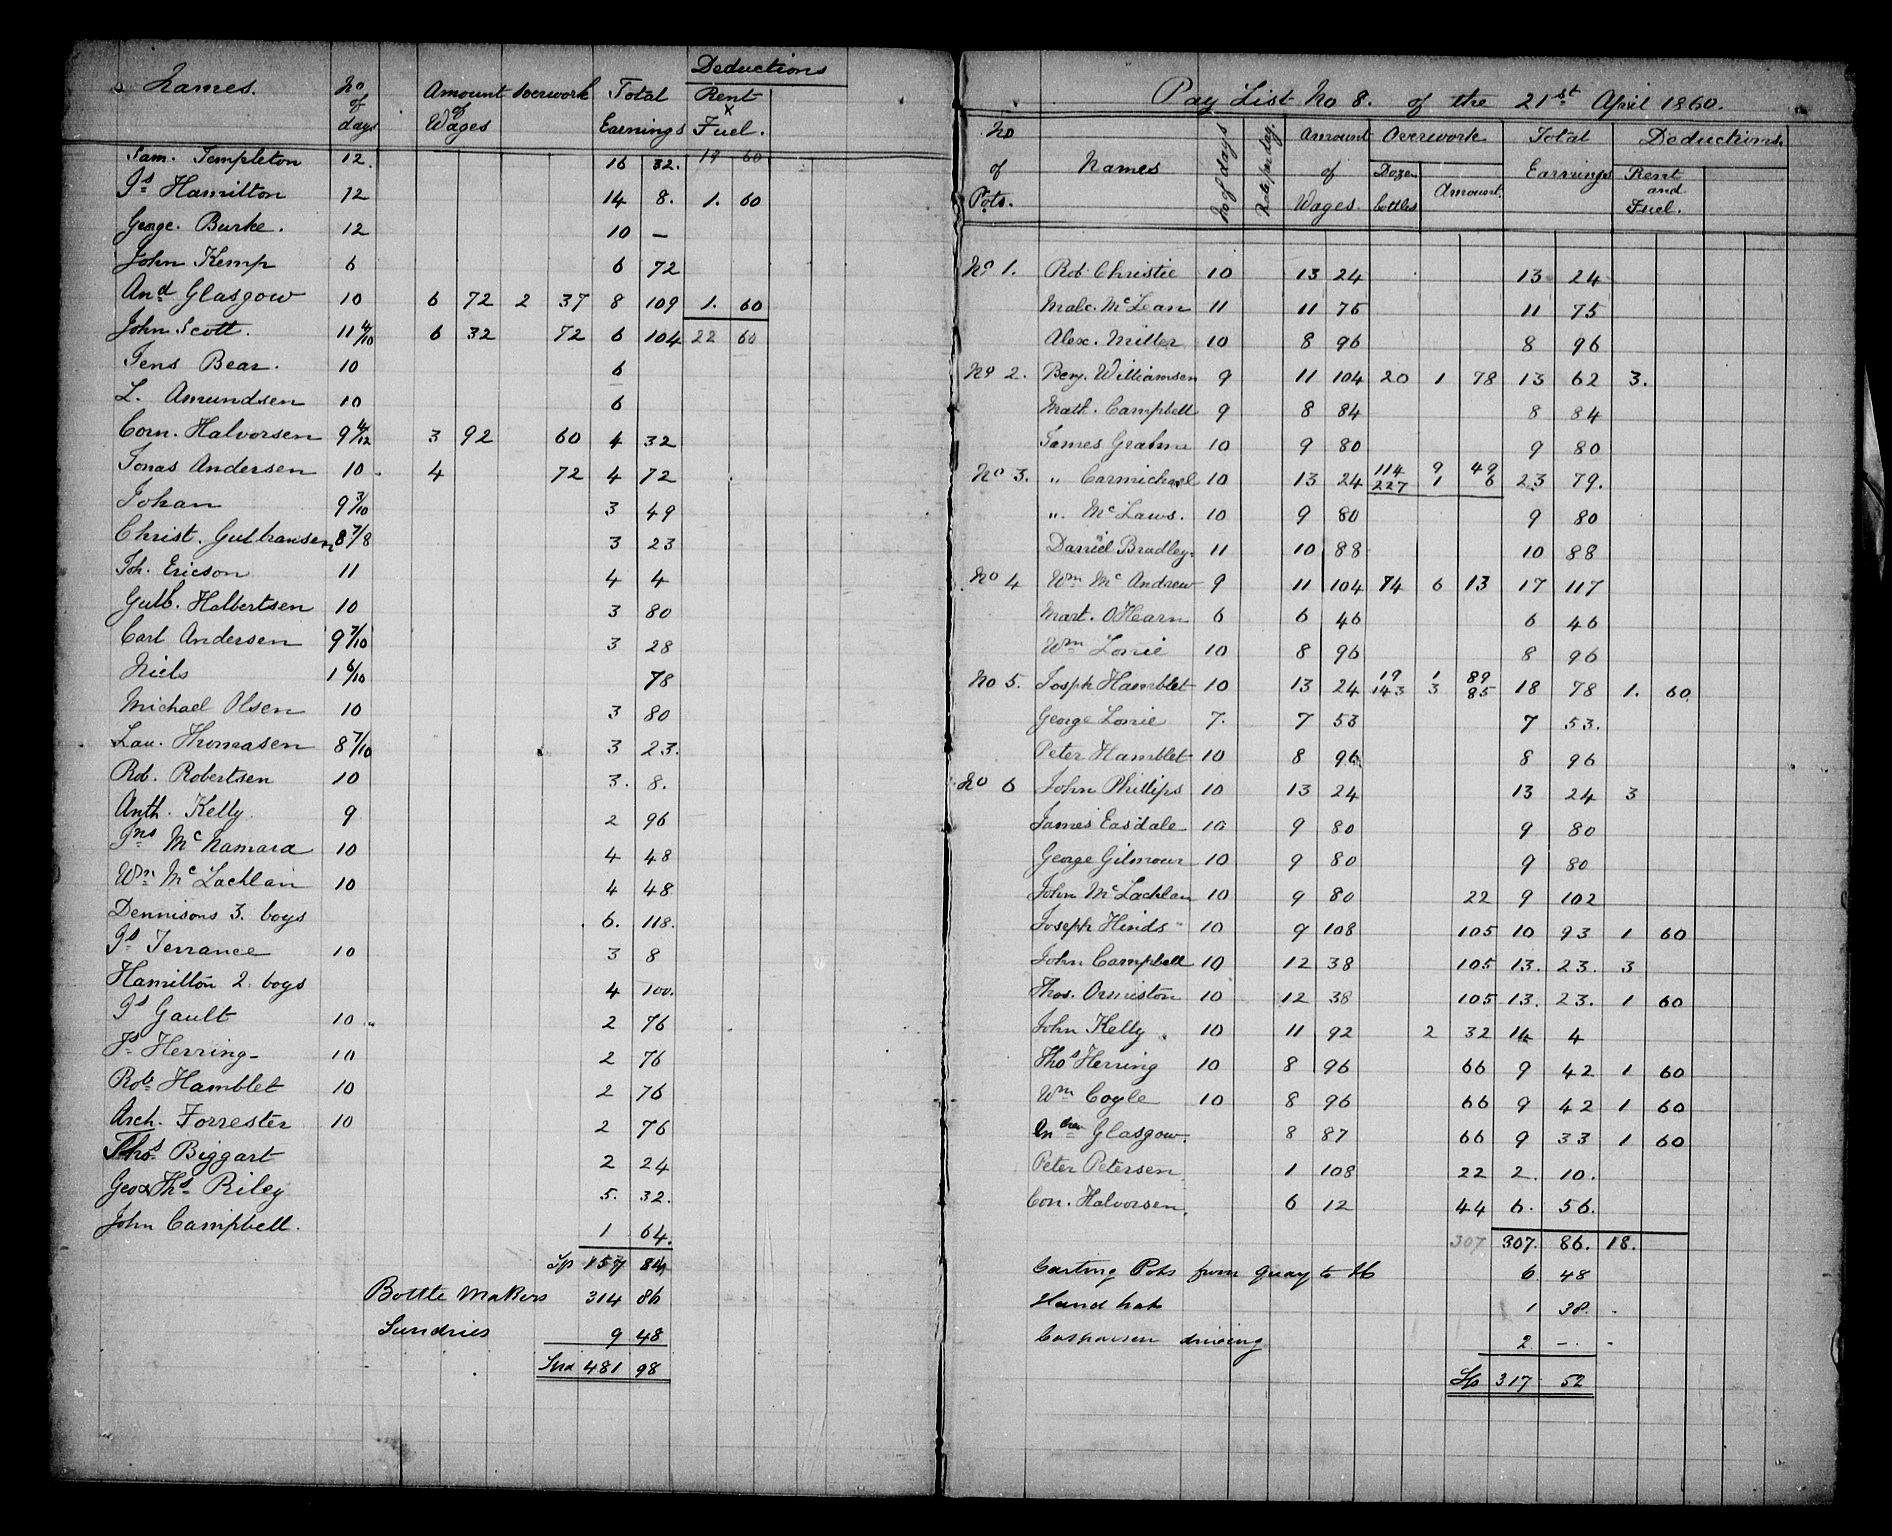 Names. No of days Amount of Wages Overwork Total Earnings Deductions Rent x Fuel.
Sam. Templeton 12. 16 32. 19 60
Js Hamilton 12 14 8. 1. 60
George. Burke. 12 10 —
John Kemp 6 6 72
And Glasgow 10 6 72 2 37 8 109 1. 60
John Scott. 11 4/10 6 32 72 6 104 22 60
Jens Bear. 10 6
L. Amundsen 10 6
Corn. Halvorsen 9 4/12 3 92 60 4 32
Jonas Andersen 10 4 72 4 72
Johan 9 3/10 3 49
Christ. Gulbransen 8 7/8 3 23
Joh. Ericson 11 4 4
Gulb. Halbertsen 10 3 80
Carl Andersen 9 7/10 3 28
Niels 1 6/10 78
Michael Olsen 10 3 80
Lau. Thomasen 8 7/10 3 23.
Rob. Robertsen 10 3. 8.
Anth. Kelly. 9 2 96
Jns McNamara 10 4 48
Wm McLachlan 10 4 48
Dennisons 3. boys 6. 118.
Js Terrance 10 3 8
Hamilton 2 boys 4 100.
Js Gault 10 2 76
Js Herring 10 2 76
Rob Hamblet 10 2 76
Arch. Forrester 10 2 76
Thos Biggart 2 24
Geo & Ths Riley 5. 32.
John Campbell. 1 64.
Sp 157 84
Bottle Makers 314 86
Sundries 9 48
481 98
Pay List No 8. of the 21st April 1860.
No of Pots. Names No of days Rate per day. Amount of Wages. Overwork Dozen bottles Amount. Total Earnings Deductions. Rent and Fuel.
No 1. Rob Christie 10 13 24 13 24
Malc. McLean 11 11 75 11 75
Alex. Miller 10 8 96 8 96
No 2. Benj. Williamsen 9 11 104 20 1 78 13 62 3.
Math. Campbell 9 8 84 8 84
James Grahm 10 9 80 9 80
No 3. " Carmichael 10 13 24 114 9 49 23 79.
227 1 6
" McLaws. 10 9 80 9 80
Daniel Bradley. 11 10 88 10 88
No 4 Wm McAndrew 9 11 104 74 6 13 17 117
Mart. OHearn 6 6 46 6 46
Wm Lorrie 10 8 96 8 96
No 5. Josph Hamblet 10 13 24 19 1 89 18 78 1. 60
143 3 85
George Lorrie 7. 7 53 7 53.
Peter Hamblet 10 8 96 8 96
No 6 John Phillips 10 13 24 13 24 3
James Easdale 10 9 80 9 80
George Gilmour 10 9 80 9 80
John McLachlan 10 9 80 22 9 102
Joseph Hinds 10 9 108 105 10 93 1 60
John Campbell 10 12 38 105 13. 23. 3
Thos. Ormiston 10 12 38 105 13. 23. 1 60
John Kelly 10 11 92 2 32 14 4
Thos Herring 10 8 96 66 9 42 1 60
Wm Coyle 10 8 96 66 9 42 1 60
Glasgow. 8 87 66 9 33 1 60
Peter Petersen 1 108 22 2. 10.
Con. Halvorsen. 6 12 44 6. 56.
307 307. 86. 18.
Carting Pots from quay to 6 48
1 38.
driving 2 —
Sp 317 52